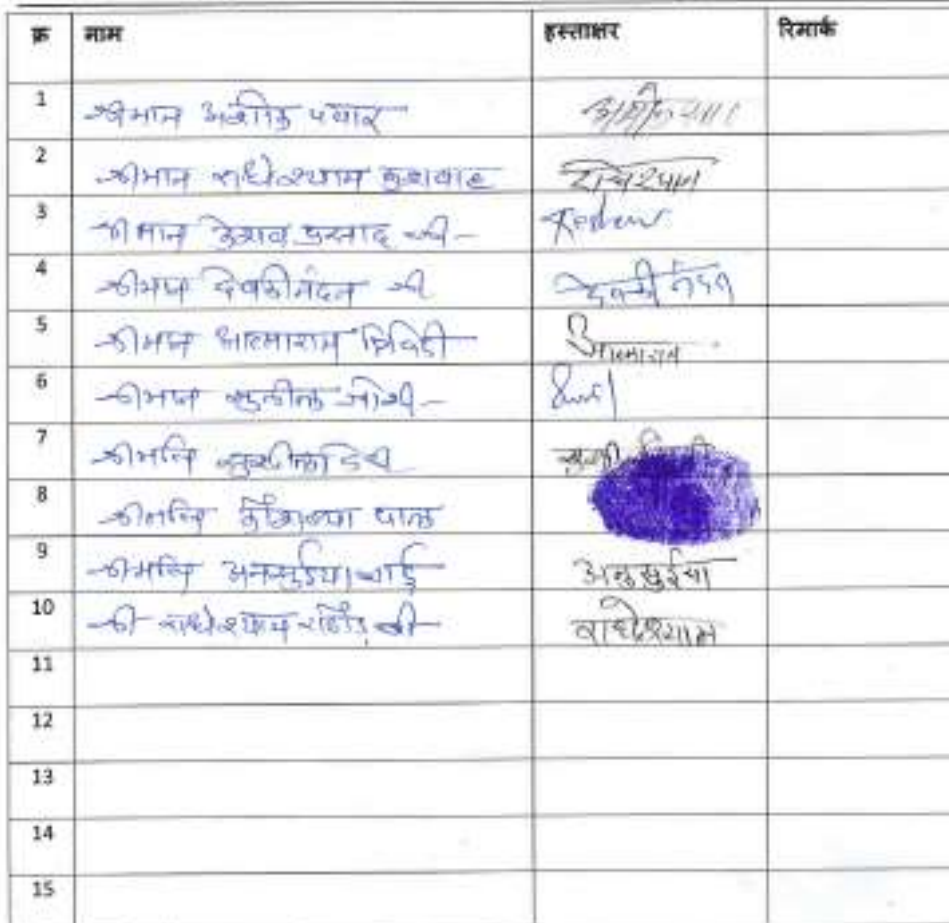 क्र नाम हस्ताक्षर रिमार्क
1 श्रीमान अशोक पवार
2 श्रीमान राधेश्याम कुशवाह राधेश्याम
3 श्रीमान केशव प्रसाद जी Keshav
4 श्रीमान देवकीनंदन जी देवकी नंदन
5 श्रीमान आत्माराम द्विवेदी आत्माराम
6 श्रीमान सुनील जोशी Sunil
7 श्रीमति सुशीला देवी
8 श्रीमति कौशल्या पाल
9 श्रीमति अनसुईया बाई अनुसुईया
10 श्री राधेश्याम राठौड़ जी राधेश्याम
11
12
13
14
15